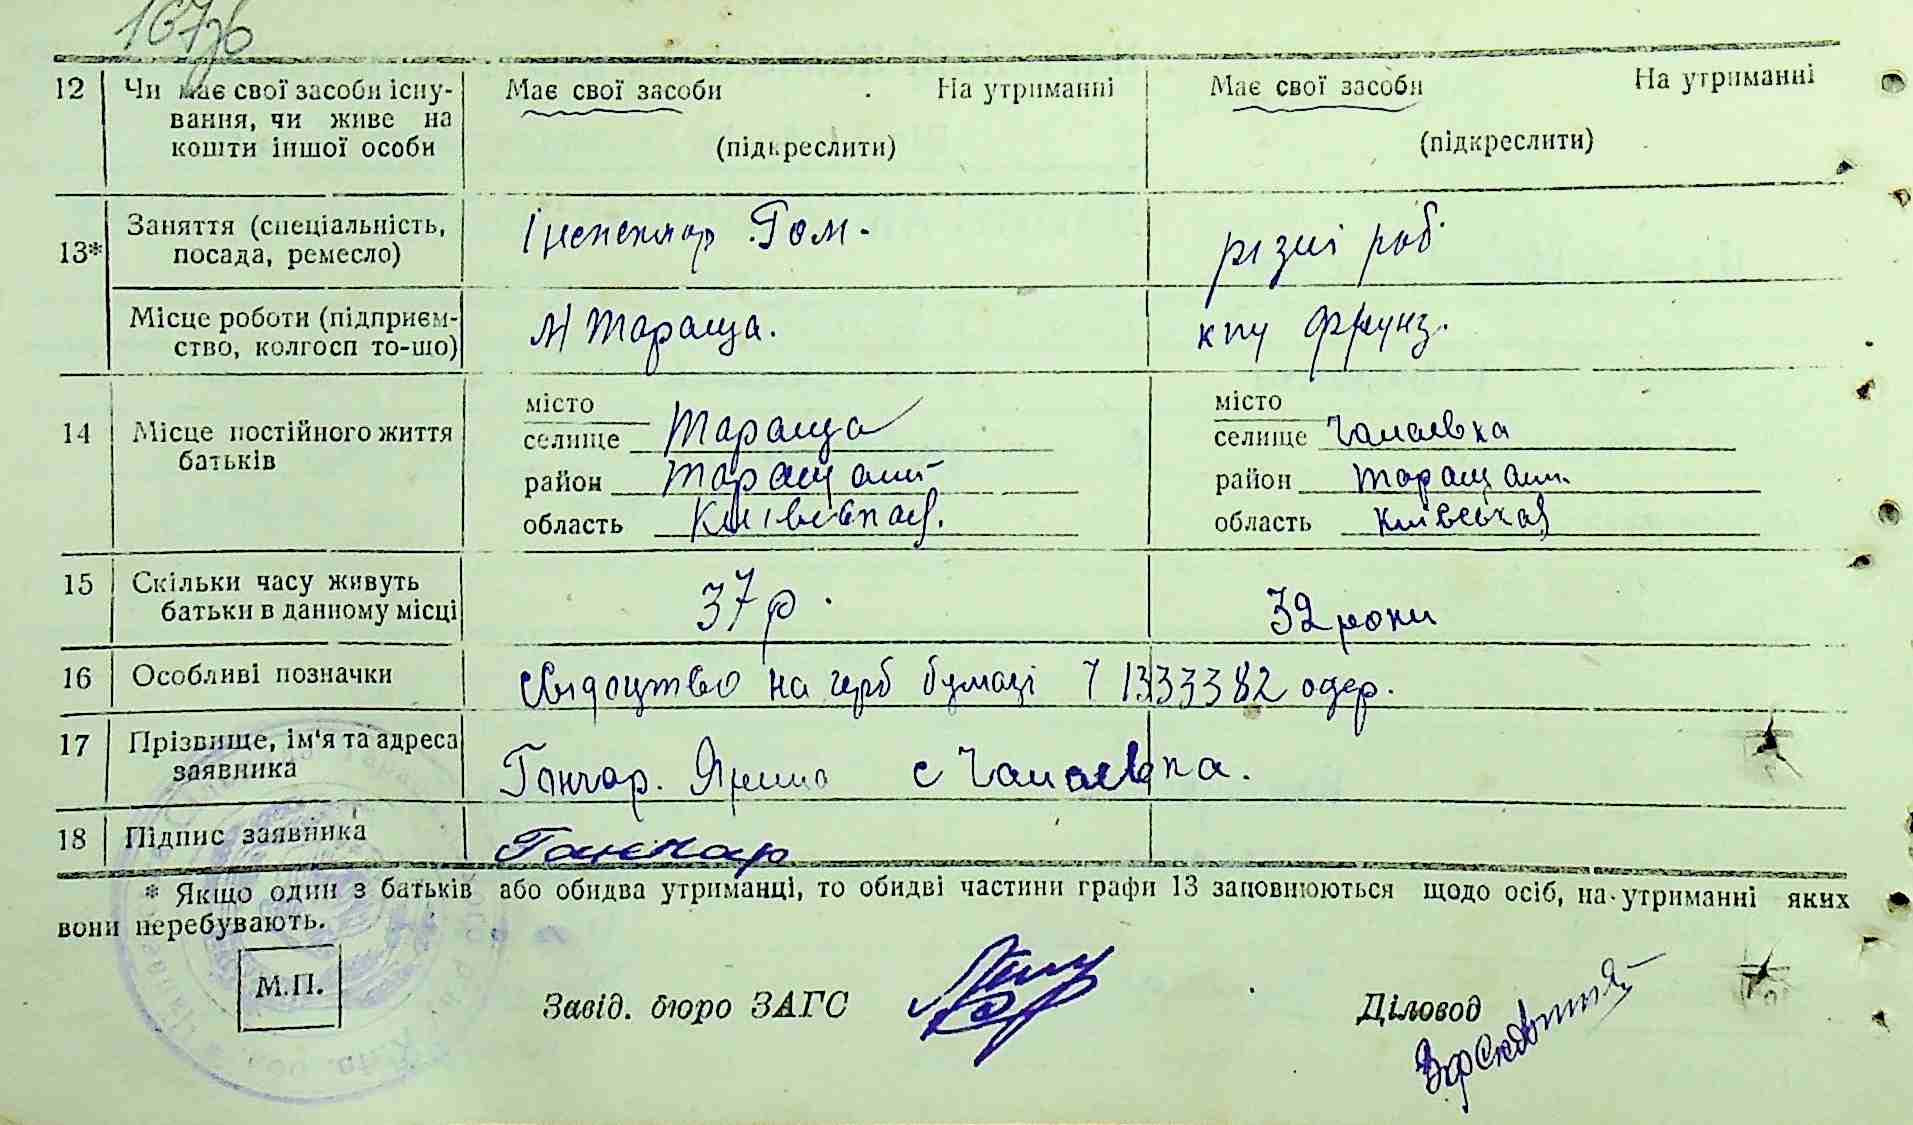 167зв
12 Чи має свої засоби існу- Має свої засоби На утриманні Має свої засоби На утриманні
вання, чи живе на
кошти іншої особи (підкреслити) (підкреслити)
13* Заняття (спеціальність, Інспектор різні роб.
посада, ремесло)
Місце роботи (підприєм- М Тараща. кпу Фрунз.
ство, колгосп то-що)
14 Місце постійного життя місто місто
батьків селище Тараща селище Чапаєвка
район Таращан район Таращан.
область Київськая. область Київськая
15 Скільки часу живуть 37 р. 32 роки
батьки в данному місці
16 Особливі позначки свидоцтво на герб бумазі 1333382 одер.
17 Прізвище, ім'я та адреса Гончар. Ярина с Чапаєвка.
заявника
18 Підпис заявника Ганчар
* Якщо один з батьків або обидва утриманці, то обидві частини графи 13 заповнюються щодо осіб, на утриманні яких
вони перебувають.
М.П. Завід. бюро ЗАГС Діловод